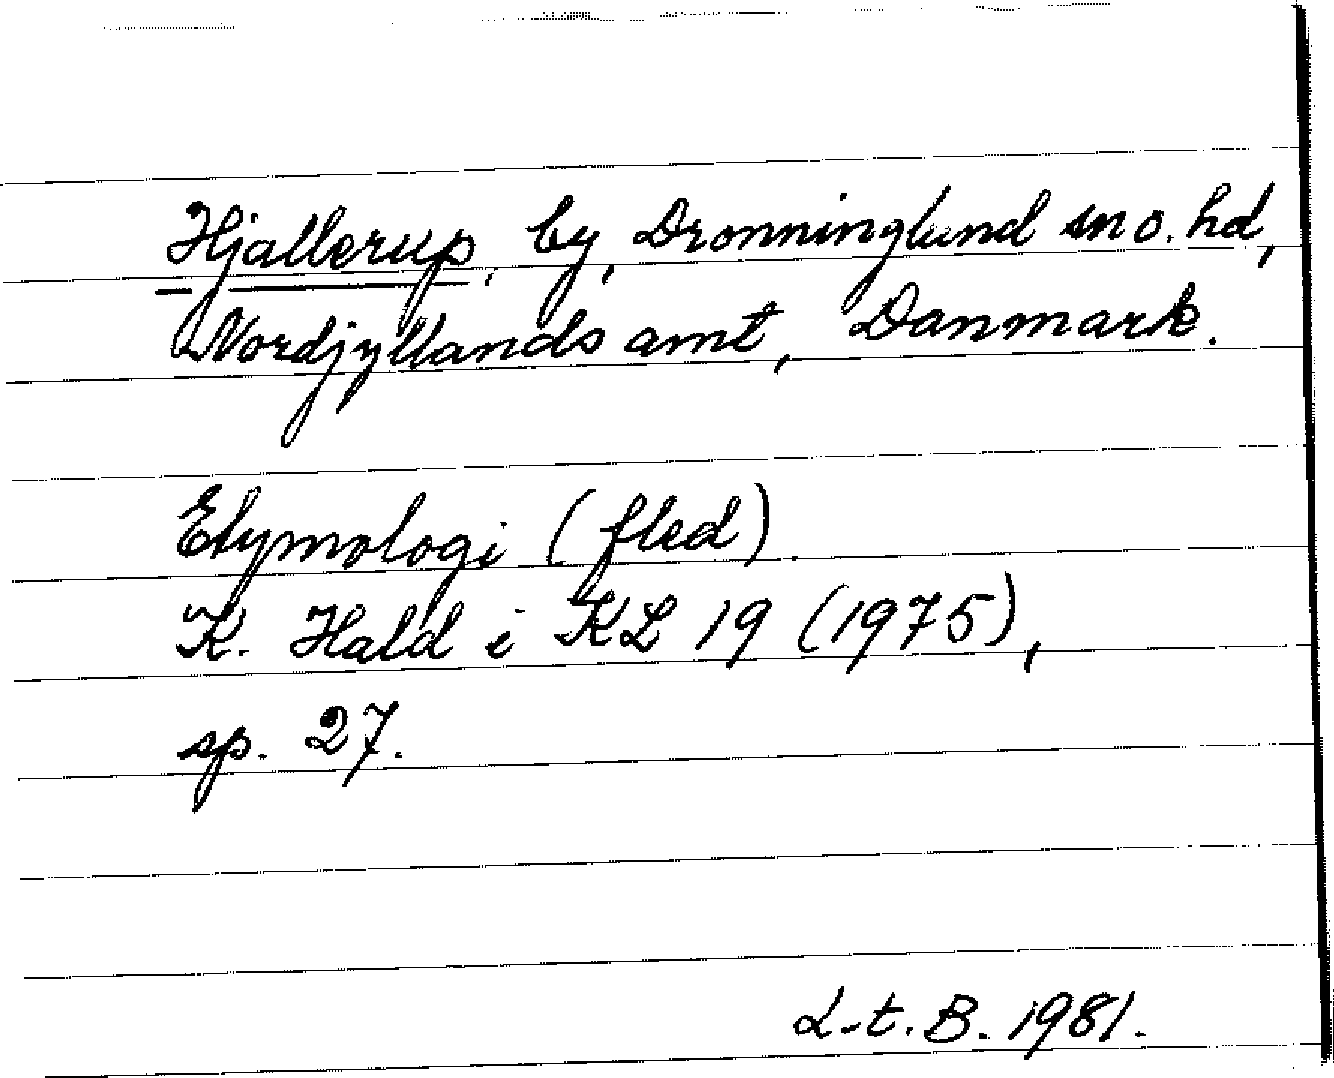 Hjallerup, by, Dronninglund sn o. hd,
Nordjyllands amt, Danmark.
Etymologi (fled)
K. Hald i KL 19 (1975),
sp. 27.
L-t. B. 1981.